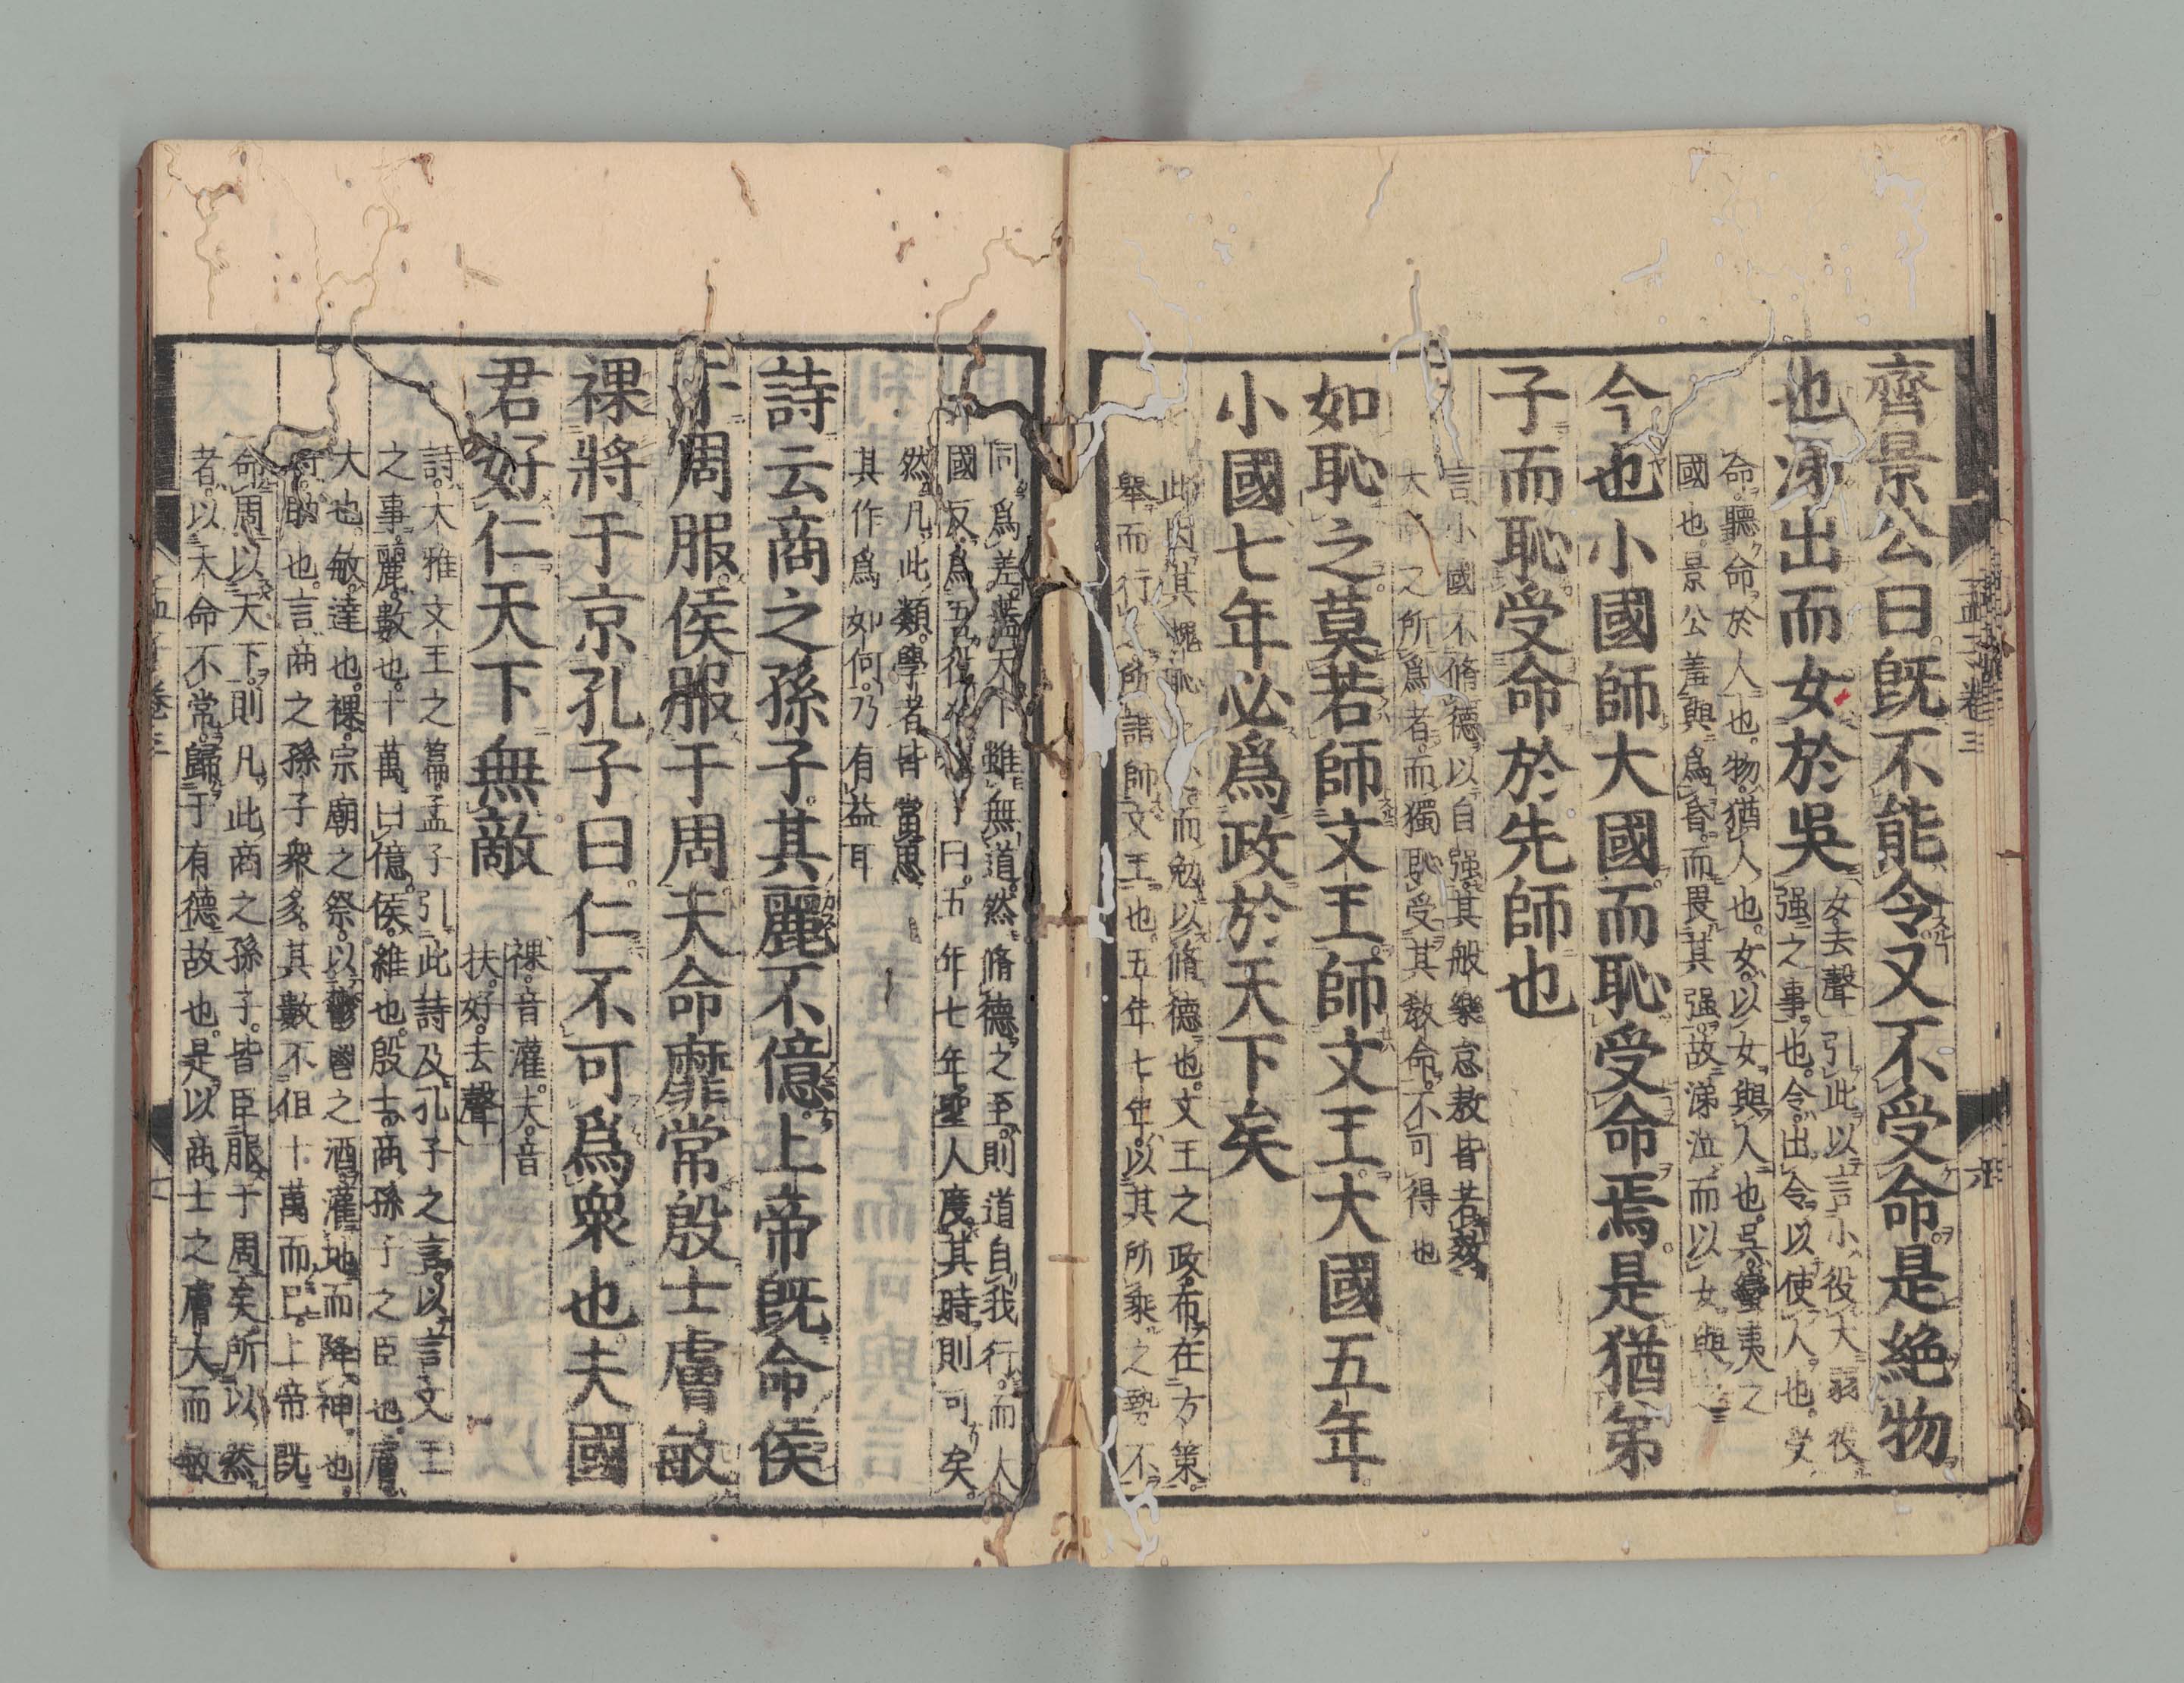 齊景公曰既不能令又不受命是絶物
也涕出而女於吳
女去聲 引此以言小役大弱役
强之事也令出令以使人也受
命聽命於人也物猶人也女以女與人也吳蠻夷之
國也景公羞與爲昏而畏其强故涕泣而以女與之
今也小國師大國而恥受命焉是猶弟
子而恥受命於先師也
言小國不脩德以自强其般樂怠敖皆若效
大國之所爲者而獨恥受其敎命不可得也
如恥之莫若師文王師文王大國五年
小國七年必爲政於天下矣
此因其愧恥之心而勉以脩德也文王之政布在方策
舉而行之所謂師文王也五年七年以其所乘之勢不
孟子卷三
六
同爲差蓋天下雖無道然脩德之至則道自我行而大
國反爲吾役 曰五年七年聖人度其時則可矣
然凡此類學者皆當思
其作爲如何乃有益耳
詩云商之孫子其麗不億上帝既命侯
于周服侯服于周天命靡常殷士膚敏
祼將于京孔子曰仁不可爲衆也夫國
君好仁天下無敵
祼音灌夫音
扶好去聲
詩大雅文王之篇孟子引此詩及孔子之言以言文王
之事麗數也十萬曰億侯維也殷士商孫子之臣也膚
大也敏達也祼宗廟之祭以鬱鬯之酒灌地而降神也
將助也言商之孫子衆多其數不但十萬而已上帝既
命周以天下則凡此商之孫子皆臣服于周矣所以然
者以天命不常歸于有德故也是以商士之膚大而敏
孟子卷三
七